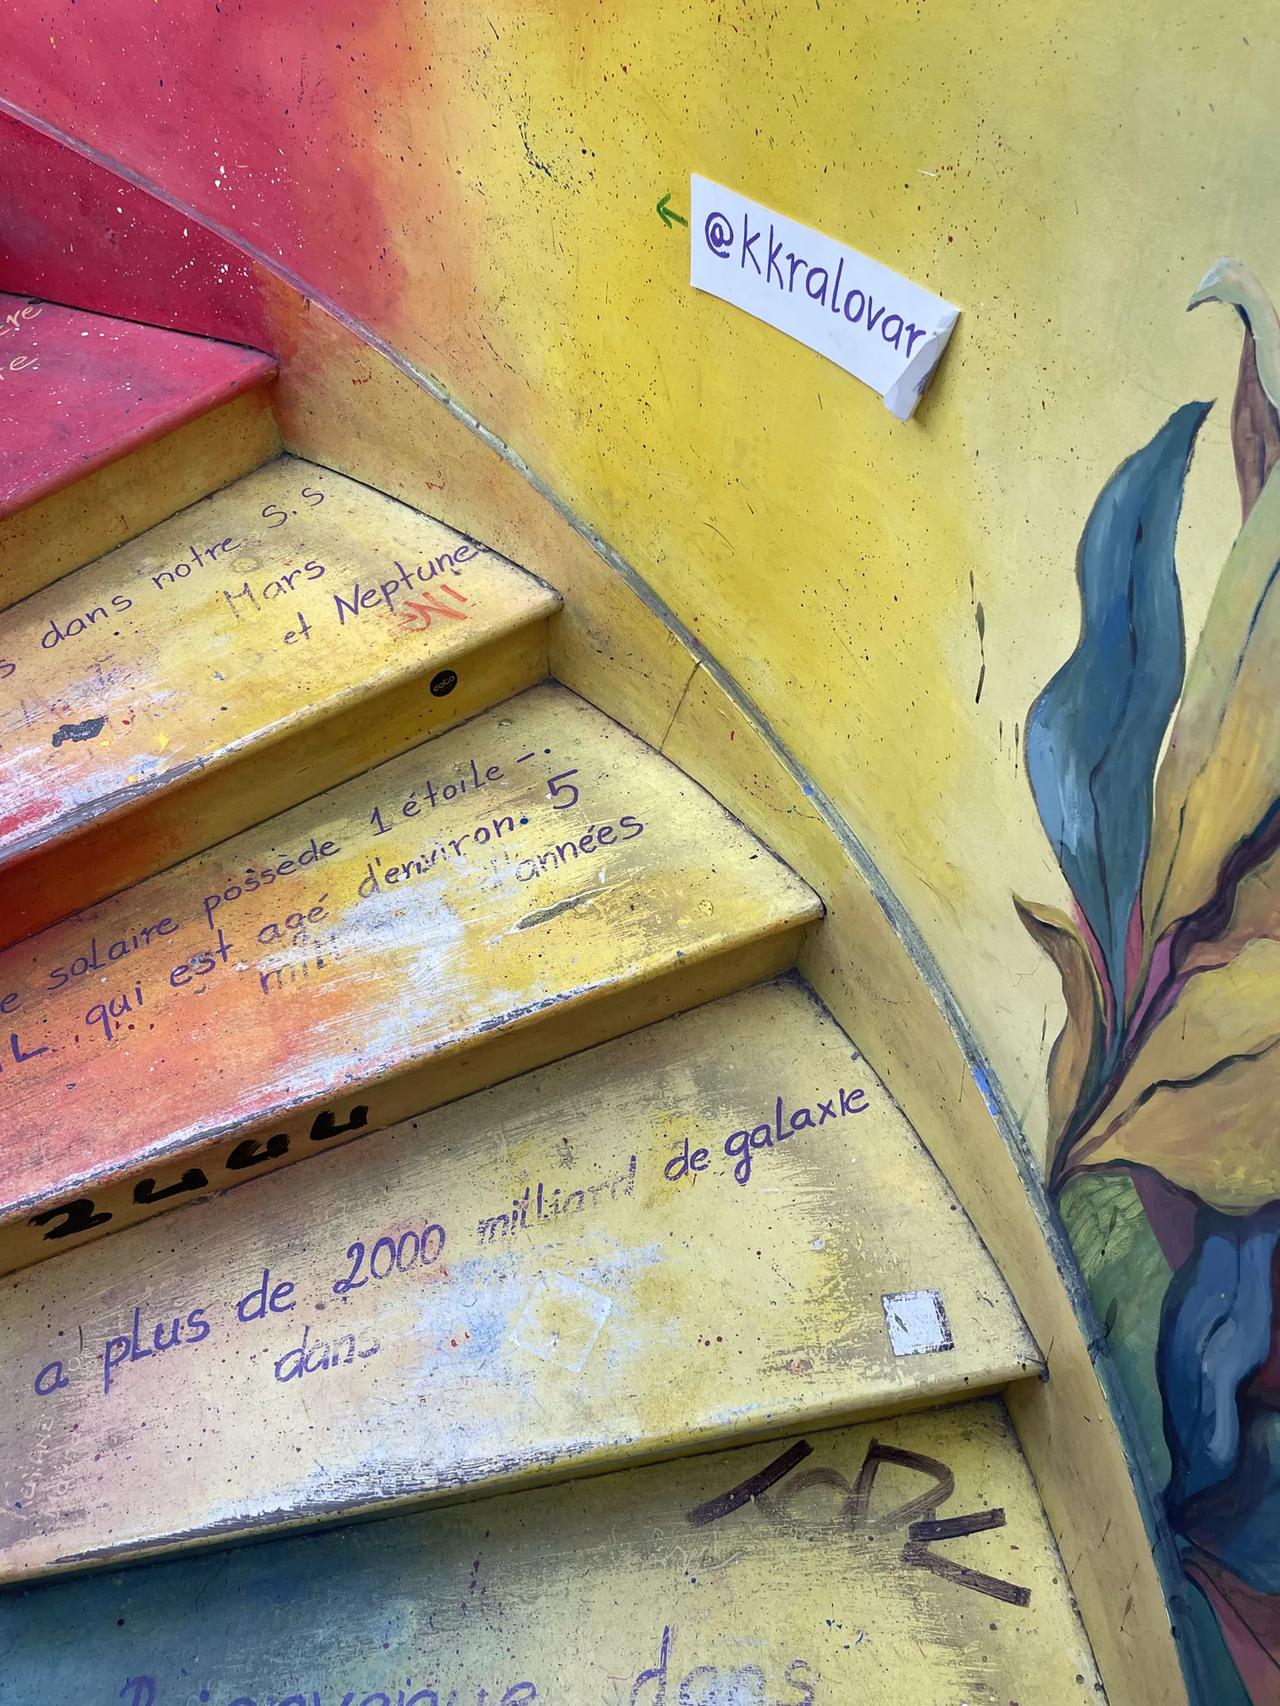 @kkralovar
dans notre S.S
Mars
et Neptune
solaire possède 1 étoile -
qui est agé d'environ. 5
d'années
a plus de 2000 milliard de galaxie
dans
Bienvenue dans